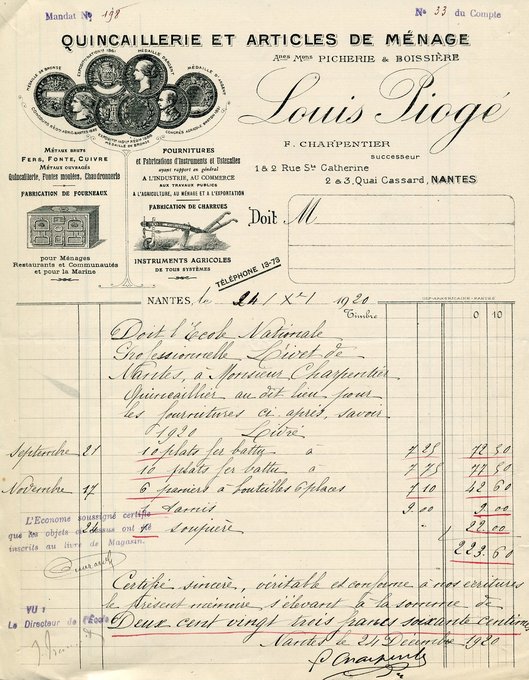 Mandat No 198
No 33 du Compte
QUINCAILLERIE ET ARTICLES DE MÉNAGE
Anes Mons PICHERIE & BOISSIÈRE
Louis Piogé
F. CHARPENTIER
SUCCESSEUR
1 & 2 Rue Ste Catherine
2 & 3, Quai Cassard, NANTES
MÉDAILLE DE BRONZE
MÉDAILLE D'ARGENT
MÉDAILLE DE BRONZE
MÉTAUX BRUTS
FERS, FONTE, CUIVRE
MÉTAUX OUVRAGÉS
Quincaillerie, Fontes moulées, Chaudronnerie
FABRICATION DE FOURNEAUX
pour Ménages
Restaurants et Communautés
et pour la Marine
FOURNITURES
et Fabrications d'Instruments et Ustensiles
ayant rapport en général
A L'INDUSTRIE, AU COMMERCE
AUX TRAVAUX PUBLICS
A L'AGRICULTURE, AU MÉNAGE ET A L'EXPORTATION
FABRICATION DE CHARRUES
INSTRUMENTS AGRICOLES
DE TOUS SYSTÈMES
TÉLÉPHONE 13-73
Doit M
NANTES, le 24 / XII 1920
Timbre 0 10
Doit l'Ecole Nationale
Professionnelle Livet de
Nantes, à Monsieur Charpentier
Quincaillier, au dit lieu pour
les fournitures ci après, savoir
1920 Livré
Septembre 21 10 plats fer battu à 7 25 72 50
10 plats fer battu à 7 75 77 50
Novembre 17 6 paniers à bouteilles 6 places 7 10 42 60
tamis 9.00 9.00
24 soupière 22.00
223.60
L'Econome soussigné certifie
que les objets ci-dessus ont été
inscrits au livre de Magasin.
Certifié sincère, véritable et conforme à nos écritures
le présent mémoire s'élevant à la somme de
Deux cent vingt trois francs soixante centimes
Nantes le 24 Décembre 1920
VU :
Le Directeur de l'École
F Charpentier